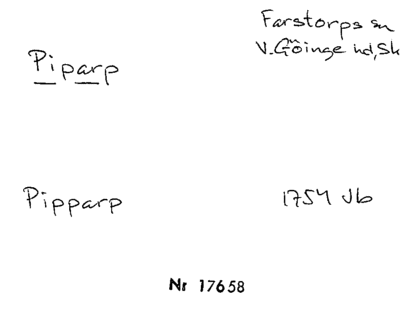 Farstorps sn
Piparp
V. Göinge hd, Sk
Pipparp
1754 Jb
Nr 17658